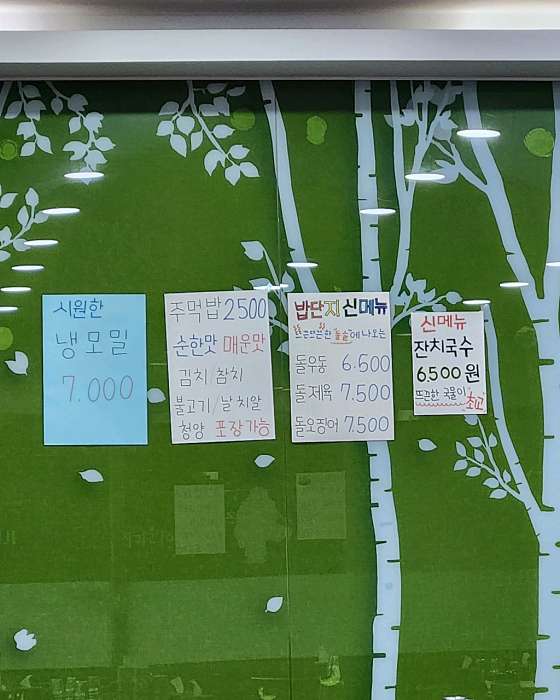 시원한
냉모밀
7.000
주먹밥 2500
순한맛 매운맛
김치 참치
불고기/날치알
청양 포장가능
밥단지 신메뉴
뜨끈한 돌솥에 나오는
돌우동 6.500
돌제육 7.500
돌오징어 7.500
신메뉴
잔치국수
6,500원
뜨끈한 국물이
최고